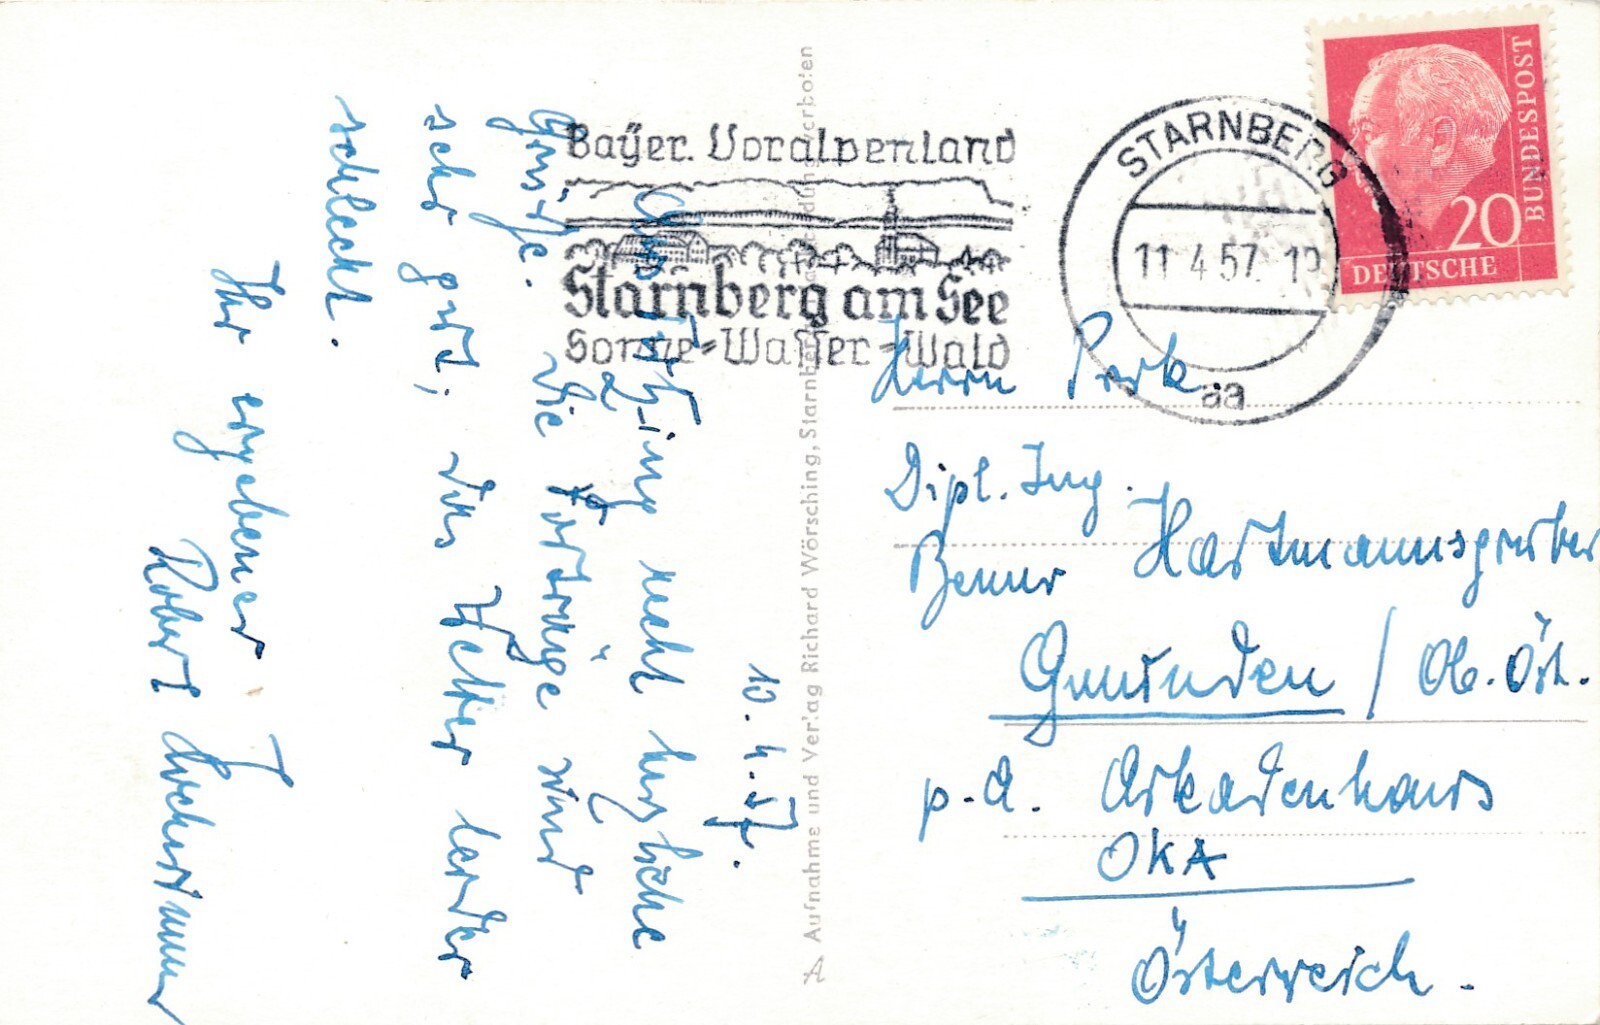 10. 4. 57.
Aus Tutzing recht herzliche
Grüße. Die Vorträge sind
sehr gut; das Wetter leider
schlecht.
Ihr ergebener
Robert
Bayer. Voralpenland
Starnberg am See
Sonne-Wasser-Wald
STARNBERG
11. 4. 57. 19
aa
DEUTSCHE BUNDESPOST
20
Herrn
Dipl. Ing.
Benno Hartmannsgruber
Gmunden / Ob. Öst.
p. A. Arkadenhaus
OKA
Österreich.
Aufnahme und Verlag Richard Wörsching, Starnberg